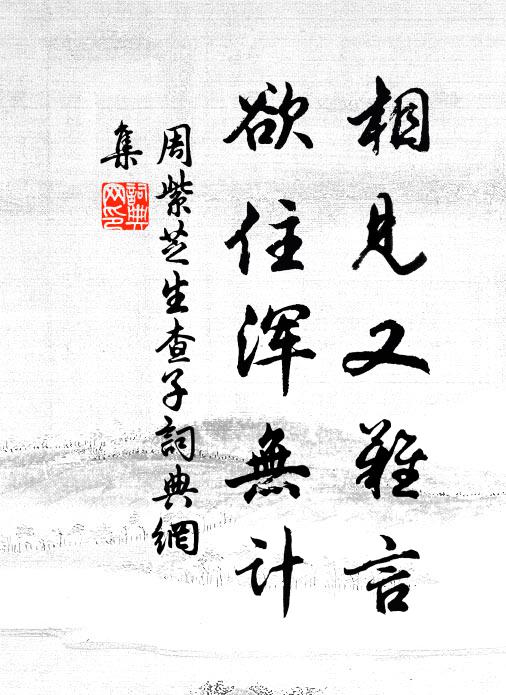 相見又難言
欲住浑無計
周紫芝生查子詞典網
集
詞典
网印